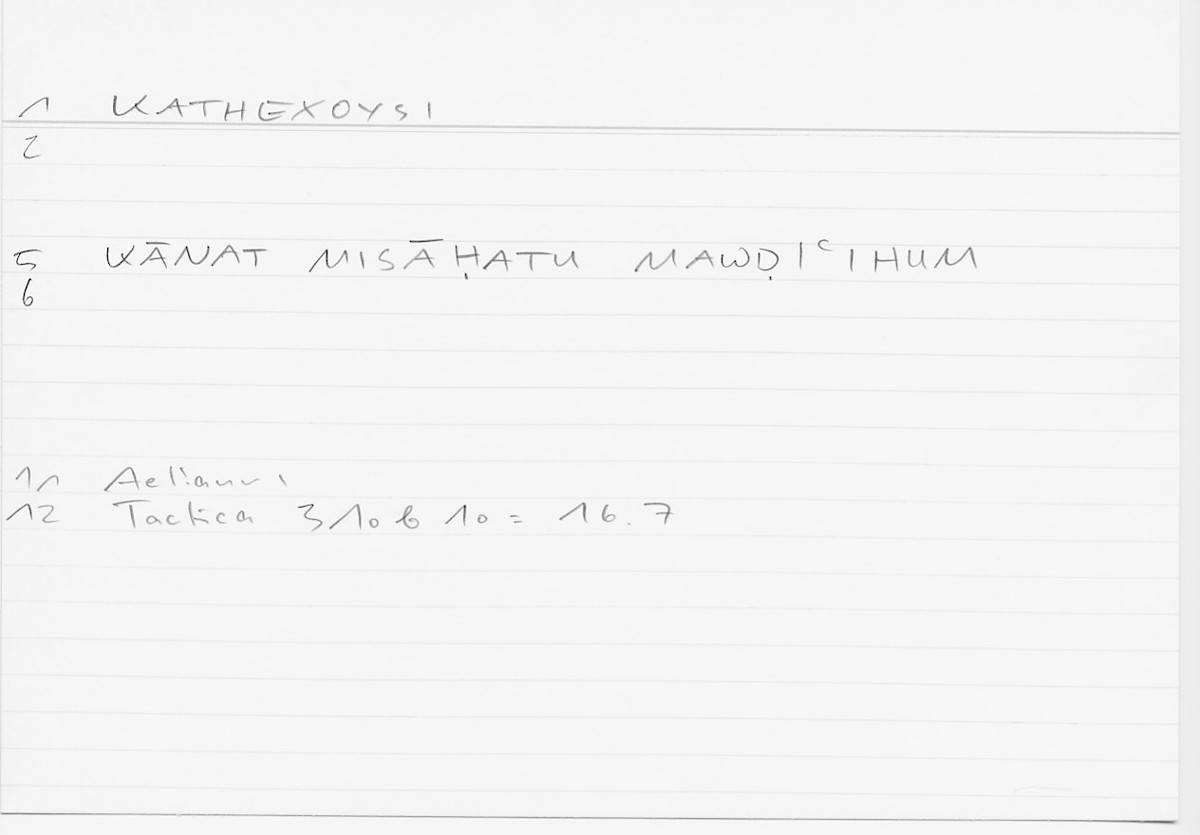 1 KATHEXOYSI
2
5 KĀNAT MISĀḤATU MAWḌIʿIHUM
6
11 Aelianus
12 Tactica 310 b 10 = 16.7